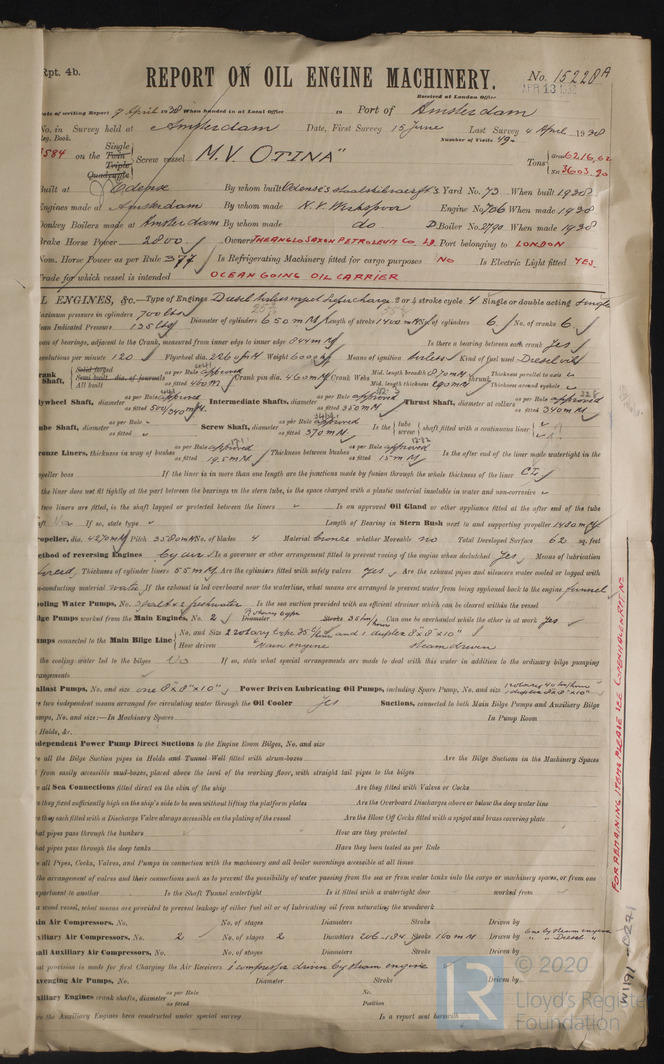 Rpt. 4b.
REPORT ON OIL ENGINE MACHINERY.
No. 15228A
Received at London Office APR 13 1938
Date of writing Report 9 April 1938 When handed in at Local Office 19 Port of Amsterdam
No. in Survey held at Amsterdam Date, First Survey 15 June Last Survey 4 April 1938
Reg. Book. Number of Visits 49
584 on the Single Twin Triple Quadruple Screw vessel M.V. "OTINA" Tons Gross 6216.62 Net 3603.90
Built at Odense By whom built Yard No. 73 When built 1938
Engines made at Amsterdam By whom made N.V. Werkspoor Engine No. 706 When made 1938
Donkey Boilers made at Amsterdam By whom made do Boiler No. 2790 When made 1938
Brake Horse Power 2800 Owners THE ANGLO SAXON PETROLEUM CO LD. Port belonging to LONDON
Nom. Horse Power as per Rule 377 Is Refrigerating Machinery fitted for cargo purposes NO Is Electric Light fitted YES
Trade for which vessel is intended OCEAN GOING OIL CARRIER
OIL ENGINES, &c.—Type of Engines Diesel 2 or 4 stroke cycle 4 Single or double acting Single
Maximum pressure in cylinders 700 lbs Diameter of cylinders 650 m/m Length of stroke 1400 m/m No. of cylinders 6 No. of cranks 6
Mean Indicated Pressure 135 lbs
Span of bearings, adjacent to the Crank, measured from inner edge to inner edge 844 m/m Is there a bearing between each crank Yes
Revolutions per minute 120 Flywheel dia. 2260 m/m Weight 6000 kg Means of ignition Kind of fuel used Diesel oil
Crank Shaft, Solid forged Semi built All built dia. of journals as per Rule approved as fitted 460 m/m Crank pin dia. 460 m/m Crank Webs Mid. length breadth 870 m/m Mid. length thickness 290 m/m Thickness parallel to axis Thickness around eyehole
Flywheel Shaft, diameter as per Rule approved as fitted 500/340 m/m Intermediate Shafts, diameter as per Rule approved as fitted 350 m/m Thrust Shaft, diameter at collars as per Rule approved as fitted 340 m/m
Tube Shaft, diameter as per Rule as fitted Screw Shaft, diameter as per Rule approved as fitted 370 m/m Is the tube screw shaft fitted with a continuous liner
Bronze Liners, thickness in way of bushes as per Rule approved as fitted 19.5 m/m Thickness between bushes as per Rule approved as fitted 15 m/m Is the after end of the liner made watertight in the
propeller boss If the liner is in more than one length are the junctions made by fusion through the whole thickness of the liner
If the liner does not fit tightly at the part between the bearings in the stern tube, is the space charged with a plastic material insoluble in water and non-corrosive
If two liners are fitted, is the shaft lapped or protected between the liners Is an approved Oil Gland or other appliance fitted at the after end of the tube
shaft No If so, state type Length of Bearing in Stern Bush next to and supporting propeller 1480 m/m
Propeller, dia. 4270 m/m Pitch 3580 m/m No. of blades 4 Material bronze whether Moveable no Total Developed Surface 62 sq. feet
Method of reversing Engines by air Is a governor or other arrangement fitted to prevent racing of the engine when declutched Yes Means of lubrication
forced Thickness of cylinder liners 55 m/m Are the cylinders fitted with safety valves yes Are the exhaust pipes and silencers water cooled or lagged with
non-conducting material If the exhaust is led overboard near the waterline, what means are arranged to prevent water from being syphoned back to the engine funnel
Cooling Water Pumps, No. Is the sea suction provided with an efficient strainer which can be cleared within the vessel
Bilge Pumps worked from the Main Engines, No. 2 Diameter Rotary type Stroke 35 ton/hour Can one be overhauled while the other is at work yes
Pumps connected to the Main Bilge Line No. and Size 2 rotary type 35 and 1 duplex 8"x8"x10"
How driven Main engine Steam driven
Is the cooling water led to the bilges No If so, state what special arrangements are made to deal with this water in addition to the ordinary bilge pumping
arrangements
Ballast Pumps, No. and size one 8"x8"x10" Power Driven Lubricating Oil Pumps, including Spare Pump, No. and size 1 duplex 8"x8"x10"
Are two independent means arranged for circulating water through the Oil Cooler Yes Suctions, connected to both Main Bilge Pumps and Auxiliary Bilge
Pumps, No. and size:—In Machinery Spaces In Pump Room
In Holds, &c.
Independent Power Pump Direct Suctions to the Engine Room Bilges, No. and size
Are all the Bilge Suction pipes in Holds and Tunnel Well fitted with strum-boxes Are the Bilge Suctions in the Machinery Spaces
led from easily accessible mud-boxes, placed above the level of the working floor, with straight tail pipes to the bilges
Are all Sea Connections fitted direct on the skin of the ship Are they fitted with Valves or Cocks
Are they fixed sufficiently high on the ship's side to be seen without lifting the platform plates Are the Overboard Discharges above or below the deep water line
Are they each fitted with a Discharge Valve always accessible on the plating of the vessel Are the Blow Off Cocks fitted with a spigot and brass covering plate
What pipes pass through the bunkers How are they protected
What pipes pass through the deep tanks Have they been tested as per Rule
Are all Pipes, Cocks, Valves, and Pumps in connection with the machinery and all boiler mountings accessible at all times
Is the arrangement of valves and their connections such as to prevent the possibility of water passing from the sea or from water tanks into the cargo or machinery spaces, or from one
compartment to another Is the Shaft Tunnel watertight Is it fitted with a watertight door worked from
If a wood vessel, what means are provided to prevent leakage of either fuel oil or of lubricating oil from saturating the woodwork
Main Air Compressors, No. No. of stages Diameters Stroke Driven by
Auxiliary Air Compressors, No. 2 No. of stages 2 Diameters 206-184 Stroke 160 m/m Driven by one by steam engine " " Diesel "
Small Auxiliary Air Compressors, No. No. of stages Diameters Stroke Driven by
What provision is made for first Charging the Air Receivers 1 compressor driven by steam engine
Scavenging Air Pumps, No. Diameter Stroke Driven by
Auxiliary Engines crank shafts, diameter as per Rule as fitted No. Position
Are the Auxiliary Engines been constructed under special survey Is a report sent herewith
FOR REMAINING ITEMS PLEASE SEE COPENHAGEN RPT. No
W1191-0271
© 2020
LR
Lloyd's Register
Foundation